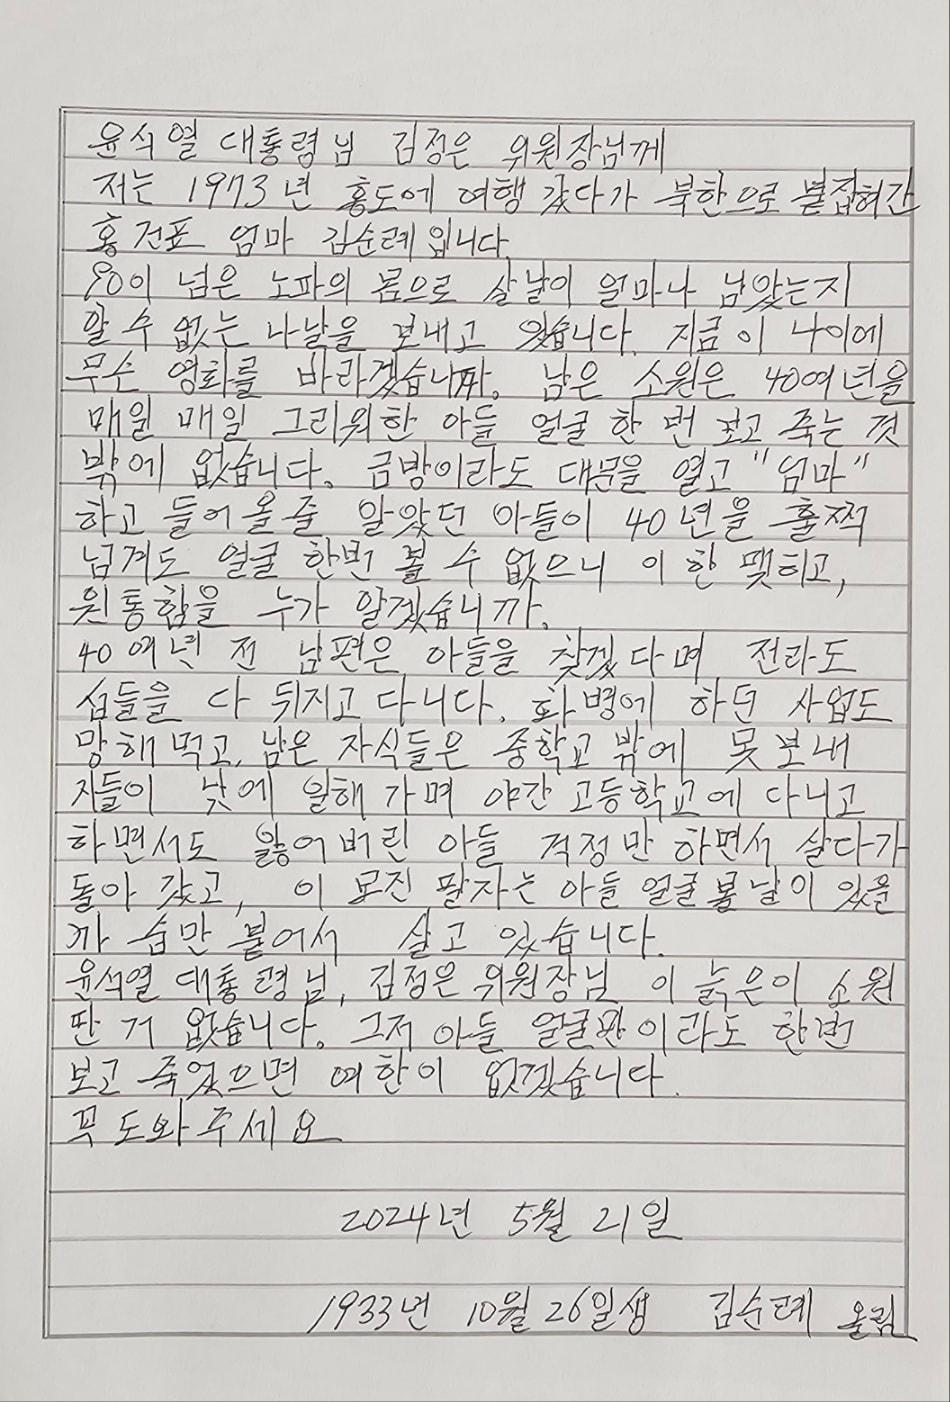 윤석열 대통령님 김정은 위원장님께
저는 1973년 홍도에 여행 갔다가 북한으로 붙잡혀간
홍건표 엄마 김순례입니다.
90이 넘은 노파의 몸으로 살날이 얼마나 남았는지
알 수 없는 나날을 보내고 있습니다. 지금 이 나이에
무슨 영화를 바라겠습니까. 남은 소원은 40여년을
매일 매일 그리워한 아들 얼굴 한 번 보고 죽는 것
밖에 없습니다. 금방이라도 대문을 열고 "엄마"
하고 들어올줄 알았던 아들이 40년을 훌쩍
넘겨도 얼굴 한번 볼 수 없으니 이 한 맺히고,
원통함을 누가 알겠습니까.
40여년 전 남편은 아들을 찾겠다며 전라도
섬들을 다 뒤지고 다니다. 화병에 하던 사업도
망해먹고, 남은 자식들은 중학교 밖에 못보내
자들이 낮에 일해가며 야간고등학교에 다니고
하면서도 잃어버린 아들 걱정만 하면서 살다가
돌아 갔고, 이 모진 팔자는 아들 얼굴 볼 날이 있을
까 숨만 붙어서 살고 있습니다.
윤석열 대통령님, 김정은 위원장님 이 늙은이 소원
딴 거 없습니다. 그저 아들 얼굴만이라도 한번
보고 죽었으면 여한이 없겠습니다.
꼭 도와주세요
2024년 5월 21일
1933년 10월 26일생 김순례 올림